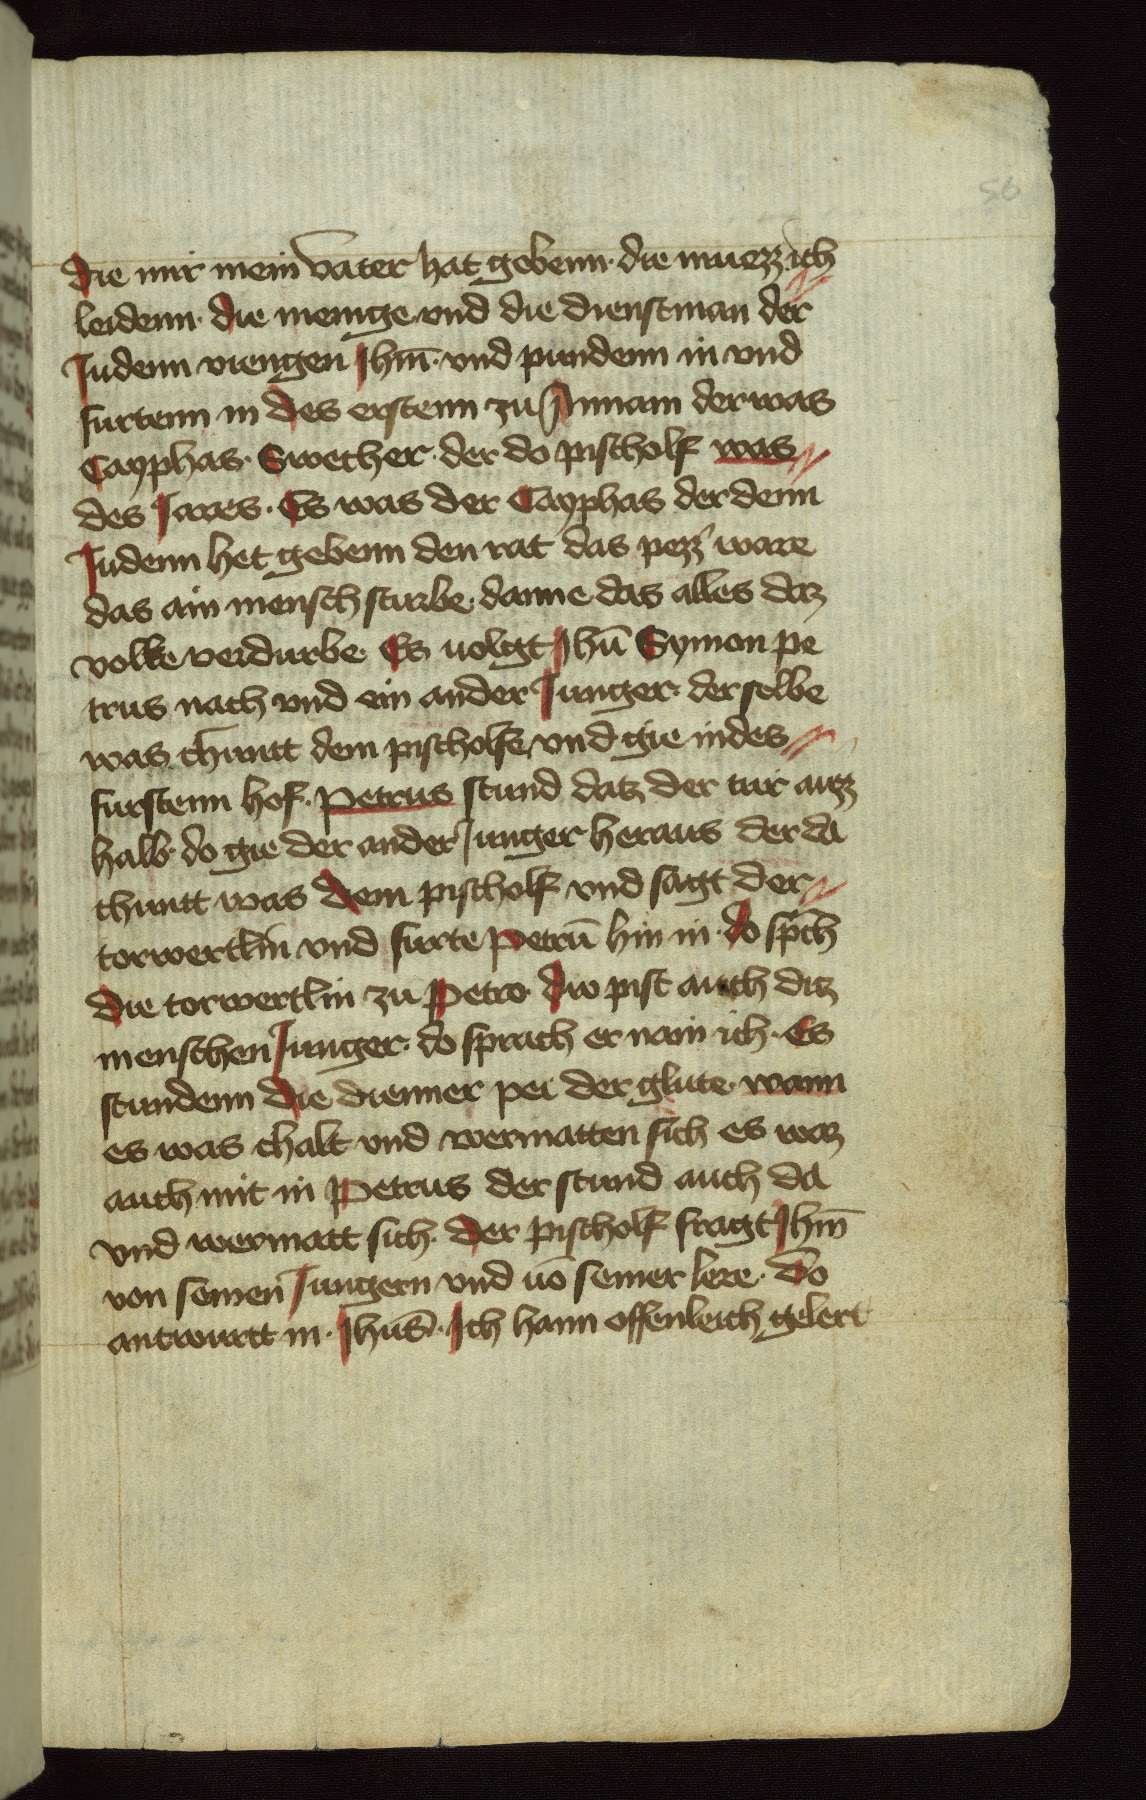 56
die mir mein vater hat gebenn· die muezz ich
leidenn· die menige vnd die dienstman der
Judenn viengen Jhm̄· vnd pundenn in vnd
furtenn in des erstenn zu Annam der was
Cayphas· Swecher· der do pischolf was
des Jares· Es was der Cayphas der denn
Judenn het gebenn den rat das pezz' ware
das ain mensch sturbe· danne das alles daz
volke verdurbe Es uolgt Jhū Symon pe
trus nach vnd ein ander Junger· der selbe
was chuntt dem pischolfe vnd gie in des
furstenn hof· Petrus stund datz der tur auzz
halb· do gie der ander Junger heraus der da
chuntt was dem pischolf vnd sagt der
torwertlin vnd furte Petrū hin in· do sp̄ch
die torwertlin zu Petro· diw pist auch ditz
menschen Junger· do sprach er nain ich· Es
stundenn die dienner pei der glute· wann
es was chalt vnd wermatten sich es waz
auch mit in Petrus der stund auch da
vnd wermatt sich· der pischolf fragt Jhm̄
von seinen Jungern vnd uō seiner lere· do
antwurtt in· Jhūs· Ich hann offenleich gelert